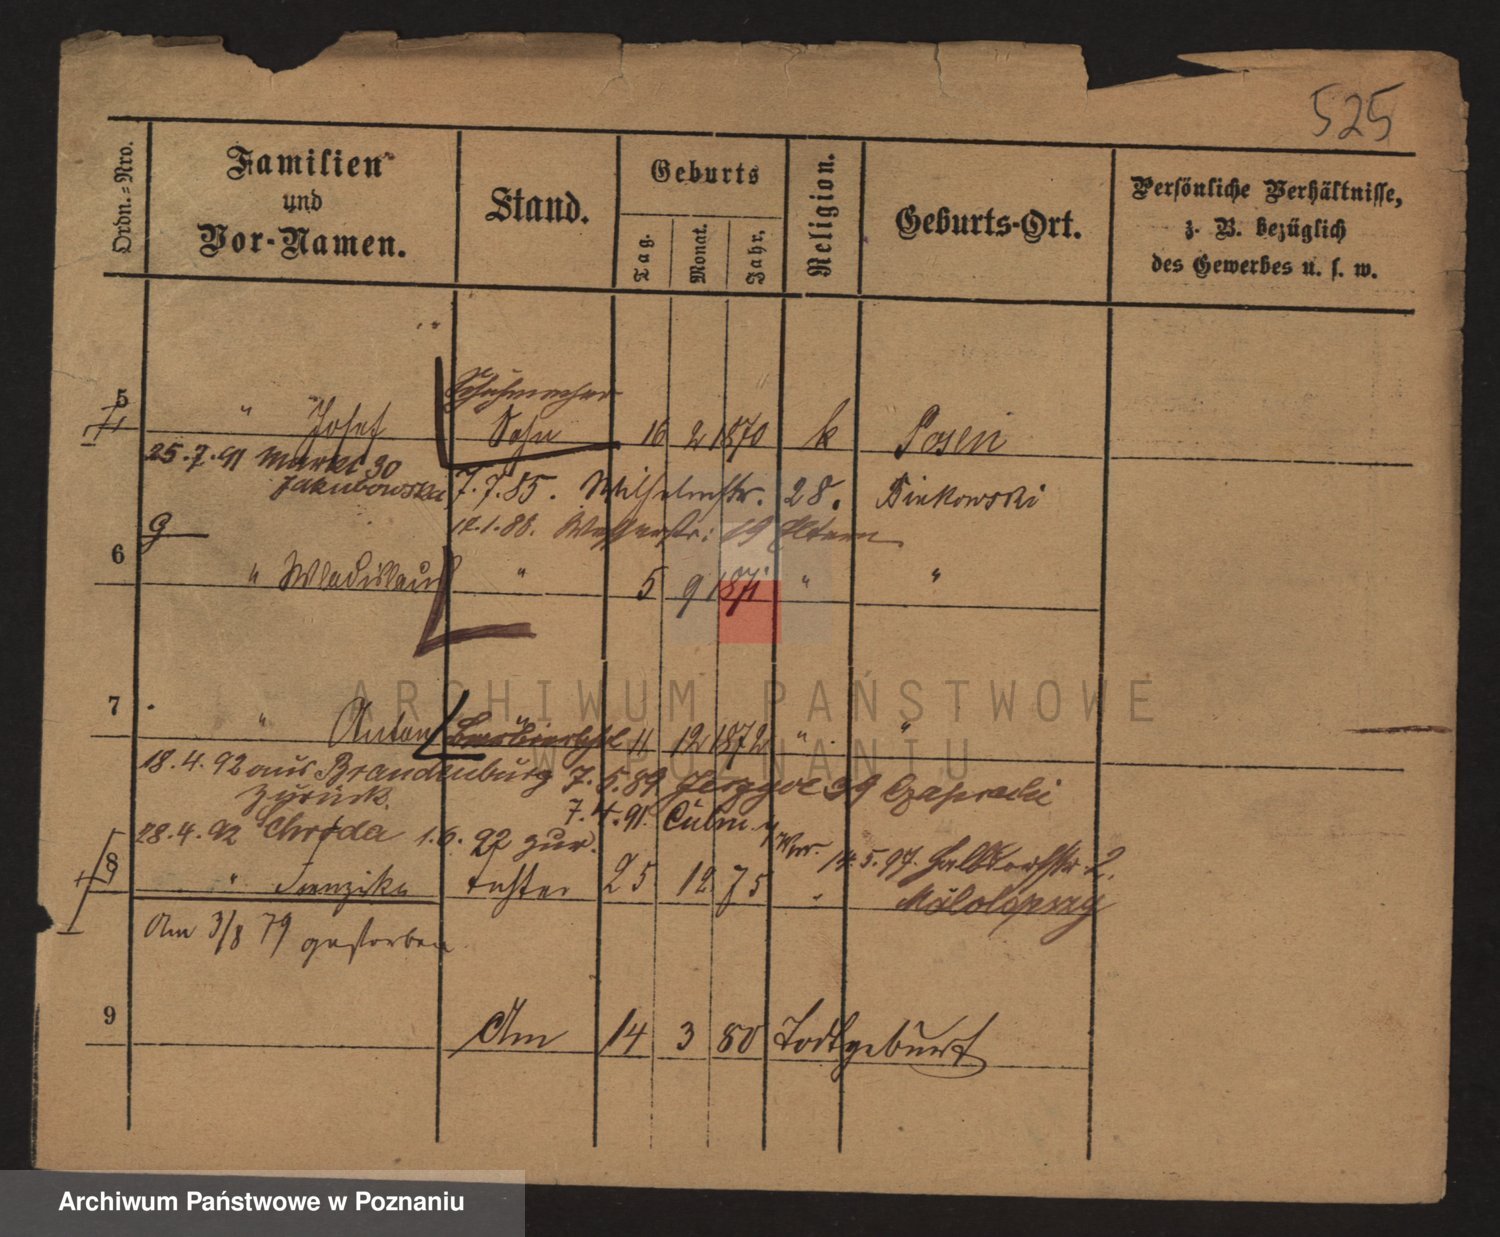 525
Ordn.=Nro.
Familien
und
Vor-Namen.
Stand.
Geburts
Tag.
Monat.
Jahr.
Religion.
Geburts-Ort.
Persönliche Verhältnisse,
z. B. bezüglich
des Gewerbes u. s. w.
Schuhmacher
5 " Josef Sohn 16 2 1870 k Posen
25.7.91 Markt 30
Jakubowska 7.7.85. Wilhelmstr. 28. Binkowski
12.1.88. Wasserstr: 19 Eltern
6 " Wladislaus " 5 9 1871 " "
7 " Anton 11 12 1872 " "
18.4.92 aus Brandenburg 7.5.89 39
zurück. 7.4.91. Culm
28.4.92 1.6.92 zur. 14.5.97. Halbdorfstr 2.
8 " Franziska Tochter 25 12 75 "
Am 3/8 79 gestorben
9 Am 14 3 80 Todtgeburt
ARCHIWUM PAŃSTWOWE
W POZNANIU
Archiwum Państwowe w Poznaniu